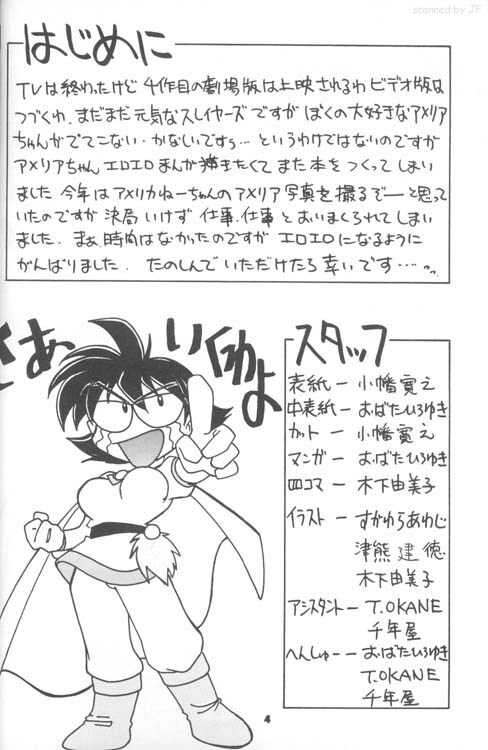 scanned by JF
はじめに
TVは終わったけど 4作目の劇場版は上映されるわ ビデオ版は
つづくわ、まだまだ元気なスレイヤーズですが ぼくの大好きなアメリア
ちゃんがでてこない・かなしいですぅ…というわけではないのですが
アメリアちゃん エロエロ まんが 描きたくて また本をつくってしまい
ました 今年はアメリカねーちゃんのアメリア写真を撮るぞーと思って
いたのですが 決局 いけず 仕事、仕事 と おいまくられてしまい
ました. まぁ、時間はなかったのですが エロエロになるように
がんばりました. たのしんで いただけたら 幸いです……
さあ いくわよ
スタッフ
表紙ー 小幡寛之
中表紙ー おばたひろゆき
カットー 小幡寛之
マンガー おばたひろゆき
四コマー 木下由美子
イラストー すがわらあわじ
津熊建徳
木下由美子
アシスタントー T.OKANE
千年屋
へんしゅーー おばたひろゆき
T.OKANE
千年屋
4